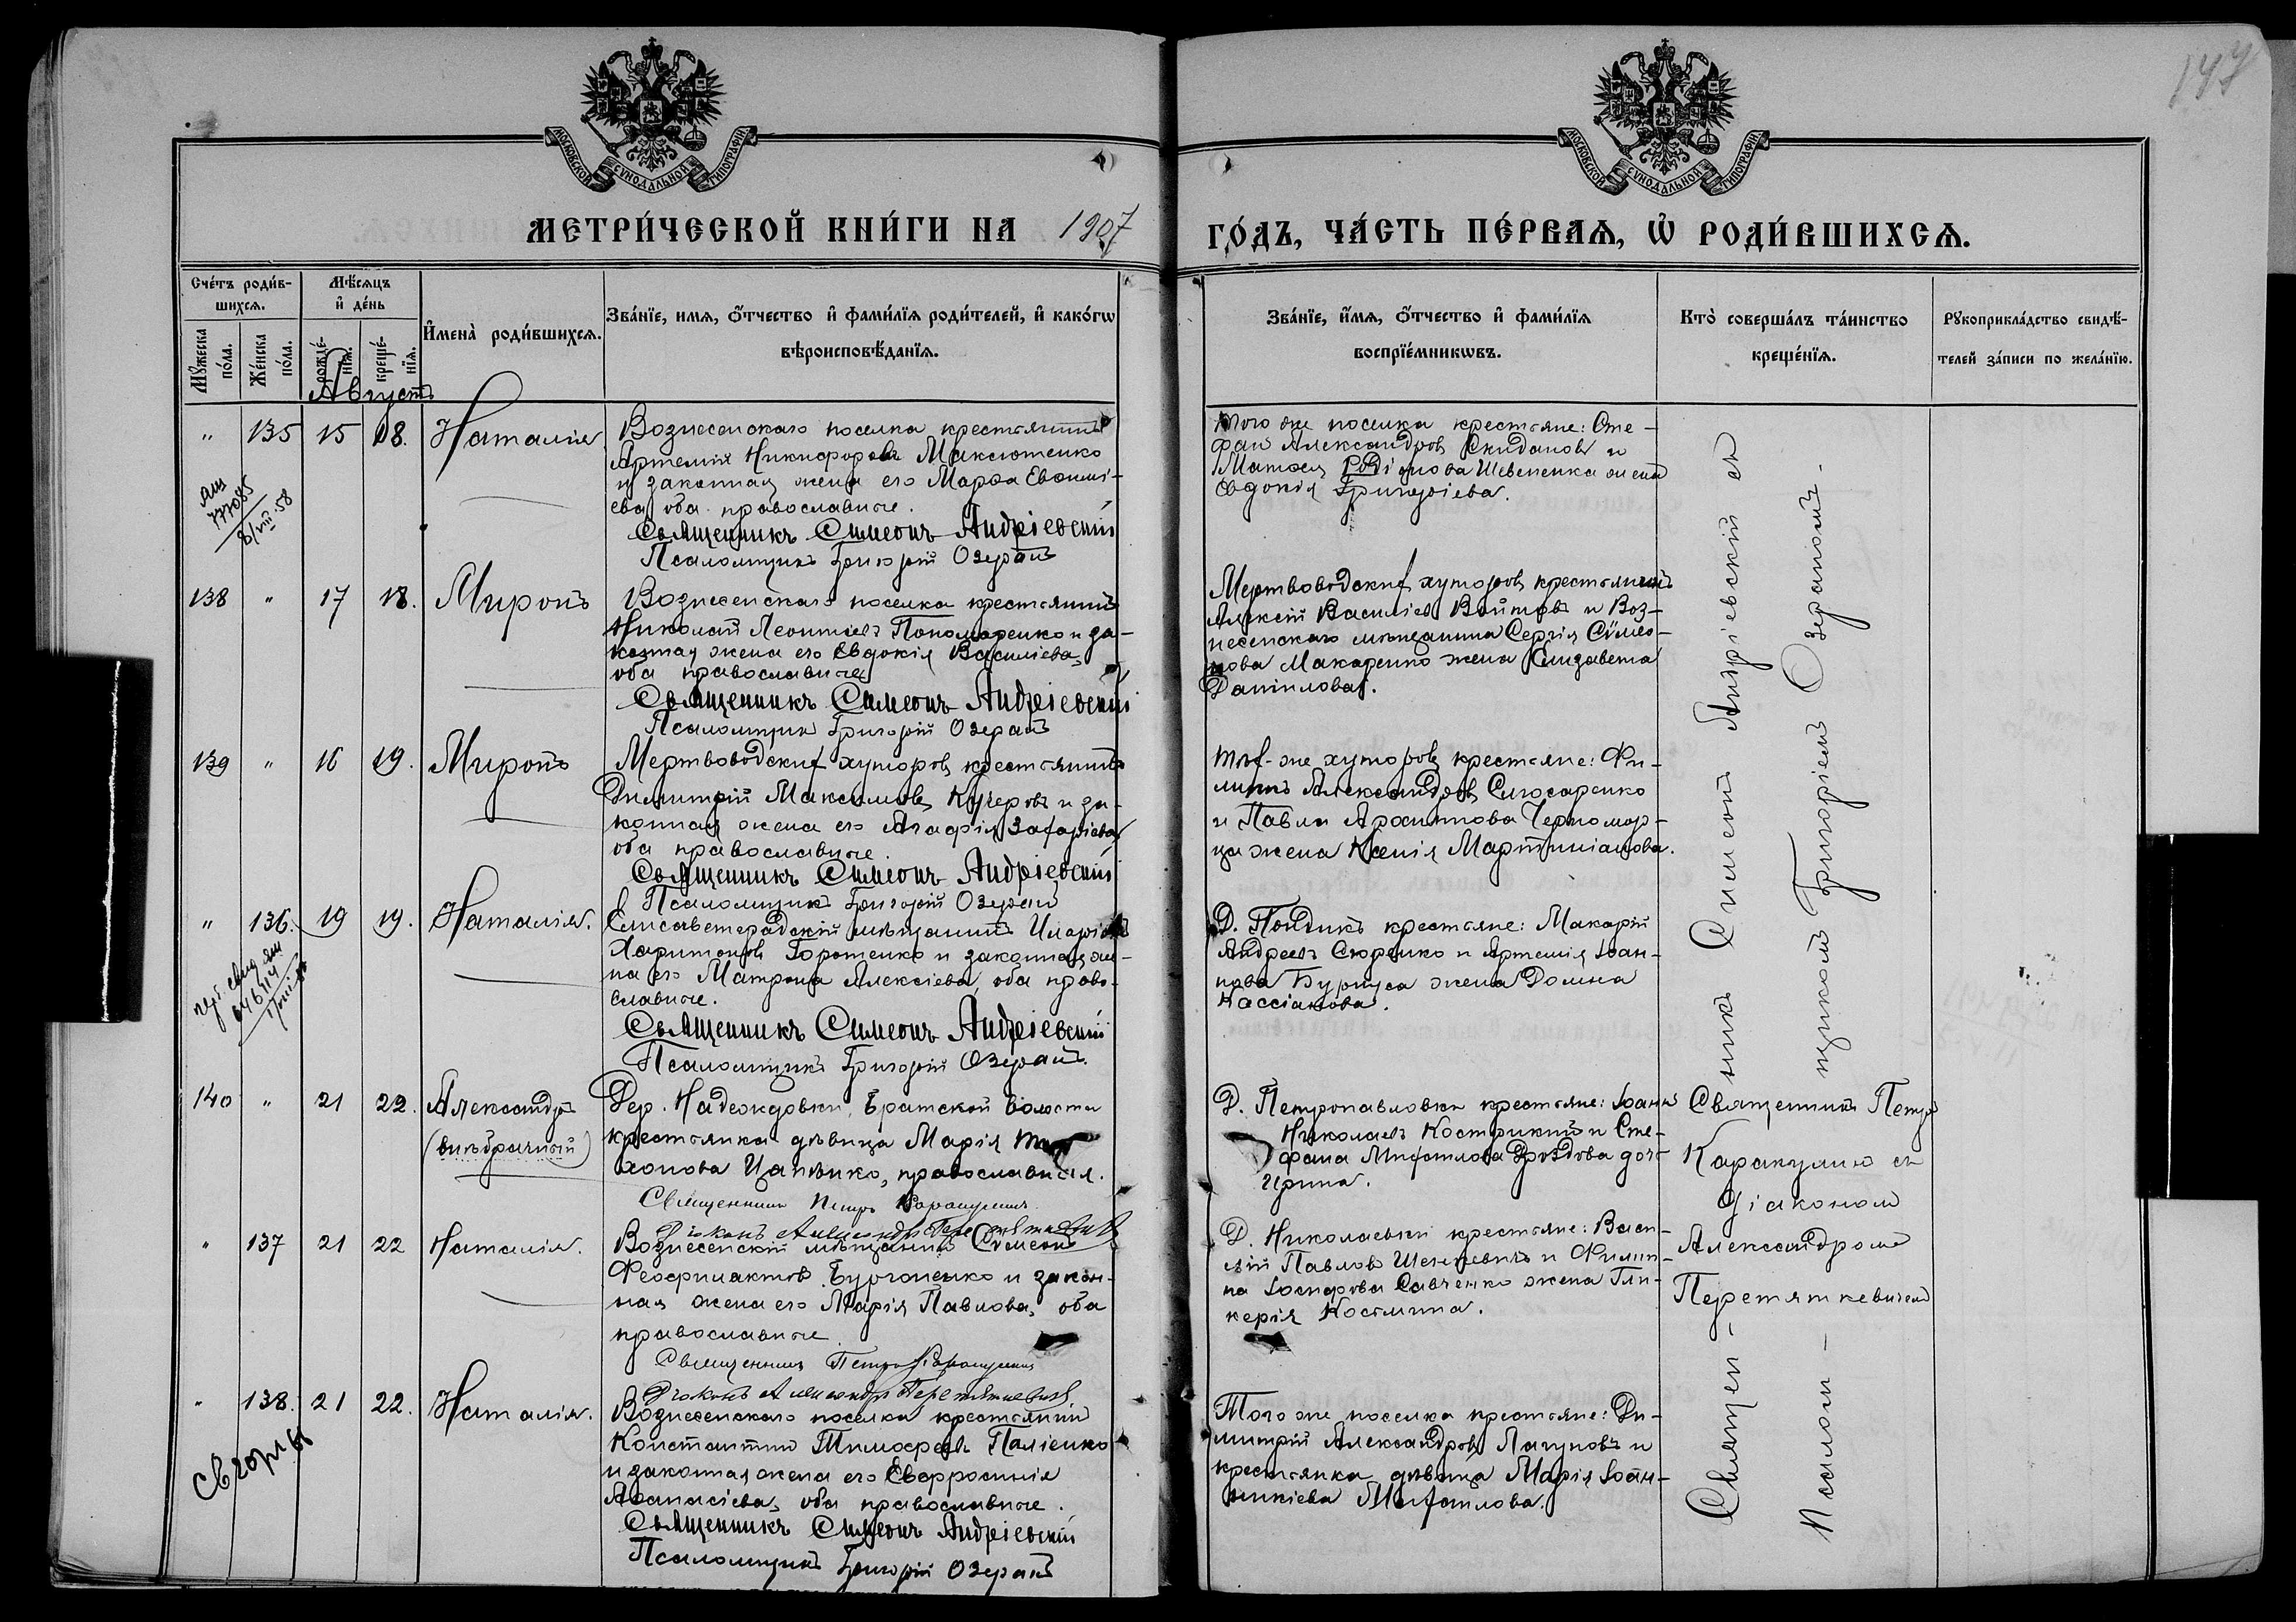 147
МОСКОВСКОЙ СѴНОДАЛЬНОЙ ТИПОГРАФІИ
МОСКОВСКОЙ СѴНОДАЛЬНОЙ ТИПОГРАФІИ
МЕТРИ́ЧЕСКОЙ КНИ́ГИ НА 1907
ГО́ДЪ, ЧА́СТЬ ПЕ́РВАЯ, Ѡ҆ РОДИ́ВШИХСЯ.
Сче́тъ роди́в-
шихся.
Мꙋ́жеска по́ла.
Же́нска по́ла.
Мѣ́сяцъ
и҆ де́нь
рожде́-
нїя.
креще́-
нїя.
И҆мена̀ роди́вшихся.
Зва́нїе, имя, ѻ҆́тчество и҆ фами́лїя роди́телей, и҆ како́гѡ
вѣроисповѣ́данїя.
Зва́нїе, и҆́мя, ѻ҆́тчество и҆ фами́лїя
воспрїе́мникѡвъ.
Кто̀ соверша́лъ та́инство
креще́нїя.
Рꙋкоприкла́дство свидѣ́-
телей за́писи по жела́нїю.
Августъ
" 135 15 18. Наталія
Вознесенскаго поселка крестьянинъ
Артемій Никифоровъ Максютенко
и законная жена его Марѳа Евѳимі-
ева, оба православные.
Священникъ Симеонъ Андріевскій
Псаломщикъ Григорій Озеранъ
того же поселка крестьяне: Сте-
фанъ Александровъ Скидановъ и
Матѳея Родіонова Шевченка жена
Евдокія Григоріева.
777085
8/VIII-58
138 " 17 18. Миронъ
Вознесенскаго поселка крестьянинъ
Николай Леонтіевъ Пономаренко и за-
конная жена его Евдокія Василіева,
оба православные
Священникъ Симеонъ Андріевскій
Псаломщикъ Григорій Озеранъ
Мертвоводскихъ хуторовъ крестьянинъ
Алексій Василіевъ Войтовъ и Воз-
несенскаго мѣщанина Сергія Сѵмео-
нова Макаренко жена Елизавета
Даніилова.
139 " 16 19. Миронъ
Мертвоводскихъ хуторовъ крестьянинъ
Димитрій Максимовъ Кучеровъ и за-
конная жена его Агафія Захаріева
оба православные.
Священникъ Симеонъ Андріевскій
Псаломщикъ Григорій Озеранъ
тѣхъ-же хуторовъ крестьяне: Фи-
липпъ Александровъ Слюсаренко
и Павла Черномор-
ца жена Ксенія Мартиніанова.
" 136. 19 19. Наталія.
Елисаветградскій мѣщанинъ Иларіонъ
Харитоновъ Горотенко и законная же-
на его Матрона Алексіева, оба право-
славные.
Священникъ Симеонъ Андріевскій
Псаломщикъ Григорій Озеранъ.
Д. крестьяне: Макарій
Андреевъ Сюренко и Артемія Іоан-
нова Бургуса жена Домна
Кассіанова.
140 " 21 22. Александръ
(внѣбрачный)
Дер. Надеждовки, Братской волости
крестьянка дѣвица Марія
хонова Цапенко, православная.
Священникъ Петръ Каракулинъ
Діаконъ Александръ Перетяткевичъ
Д. Петропавловки крестьяне: Іоаннъ
Николаевъ Кострикинъ и Сте-
фана Михаилова Дроздова дочь
Ирина.
Священникъ Петръ
Каракулинъ съ
діакономъ
Александромъ
Перетяткевичемъ
" 137 21 22 Наталія.
Вознесенскій мѣщанинъ Сѵмеонъ
Феофилактовъ Бургоненко и закон-
ная жена его Марія Павлова, оба
православные.
Священникъ Петръ Каракулинъ
Діаконъ Александръ Перетяткевичъ
Д. Николаевки крестьяне: Васи-
лій Павловъ и Филип-
па Іосифова Савченко жена Гли-
керія Космина.
" 138. 21 22. Наталія.
Вознесенскаго поселка крестьянинъ
Константинъ Тимофеевъ Паліенко
и законная жена его Евфросинія
Аѳанасіева, оба православные.
Священникъ Симеонъ Андріевскій
Псаломщикъ Григорій Озеранъ
Того же поселка крестьяне: Ди-
митрій Александровъ Лагуновъ и
крестьянка дѣвица Марія Іоан-
никіева Михаилова.
Священ-никъ Симеонъ Андріевскій съ
Псалом-щикомъ Григоріемъ Озераномъ.